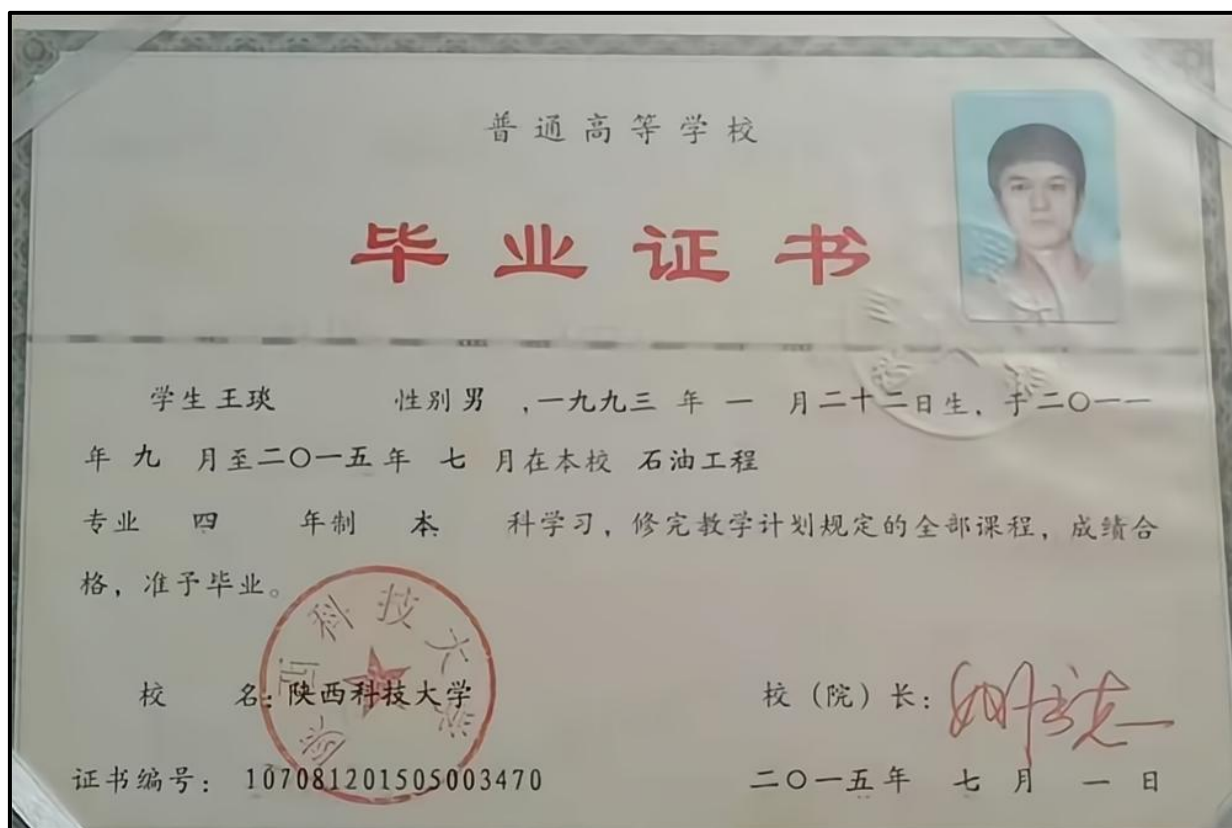 普通高等学校
毕业证书
学生王琰 性别男 ,一九九三 年 一 月二十二日生, 于二〇一一
年 九 月至二〇一五年 七 月在本校 石油工程
专业 四 年制 本 科学习, 修完教学计划规定的全部课程, 成绩合
格, 准予毕业。
陕西科技大学
校 名: 陕西科技大学
校 (院) 长:
证书编号: 107081201505003470
二〇一五年 七 月 一 日